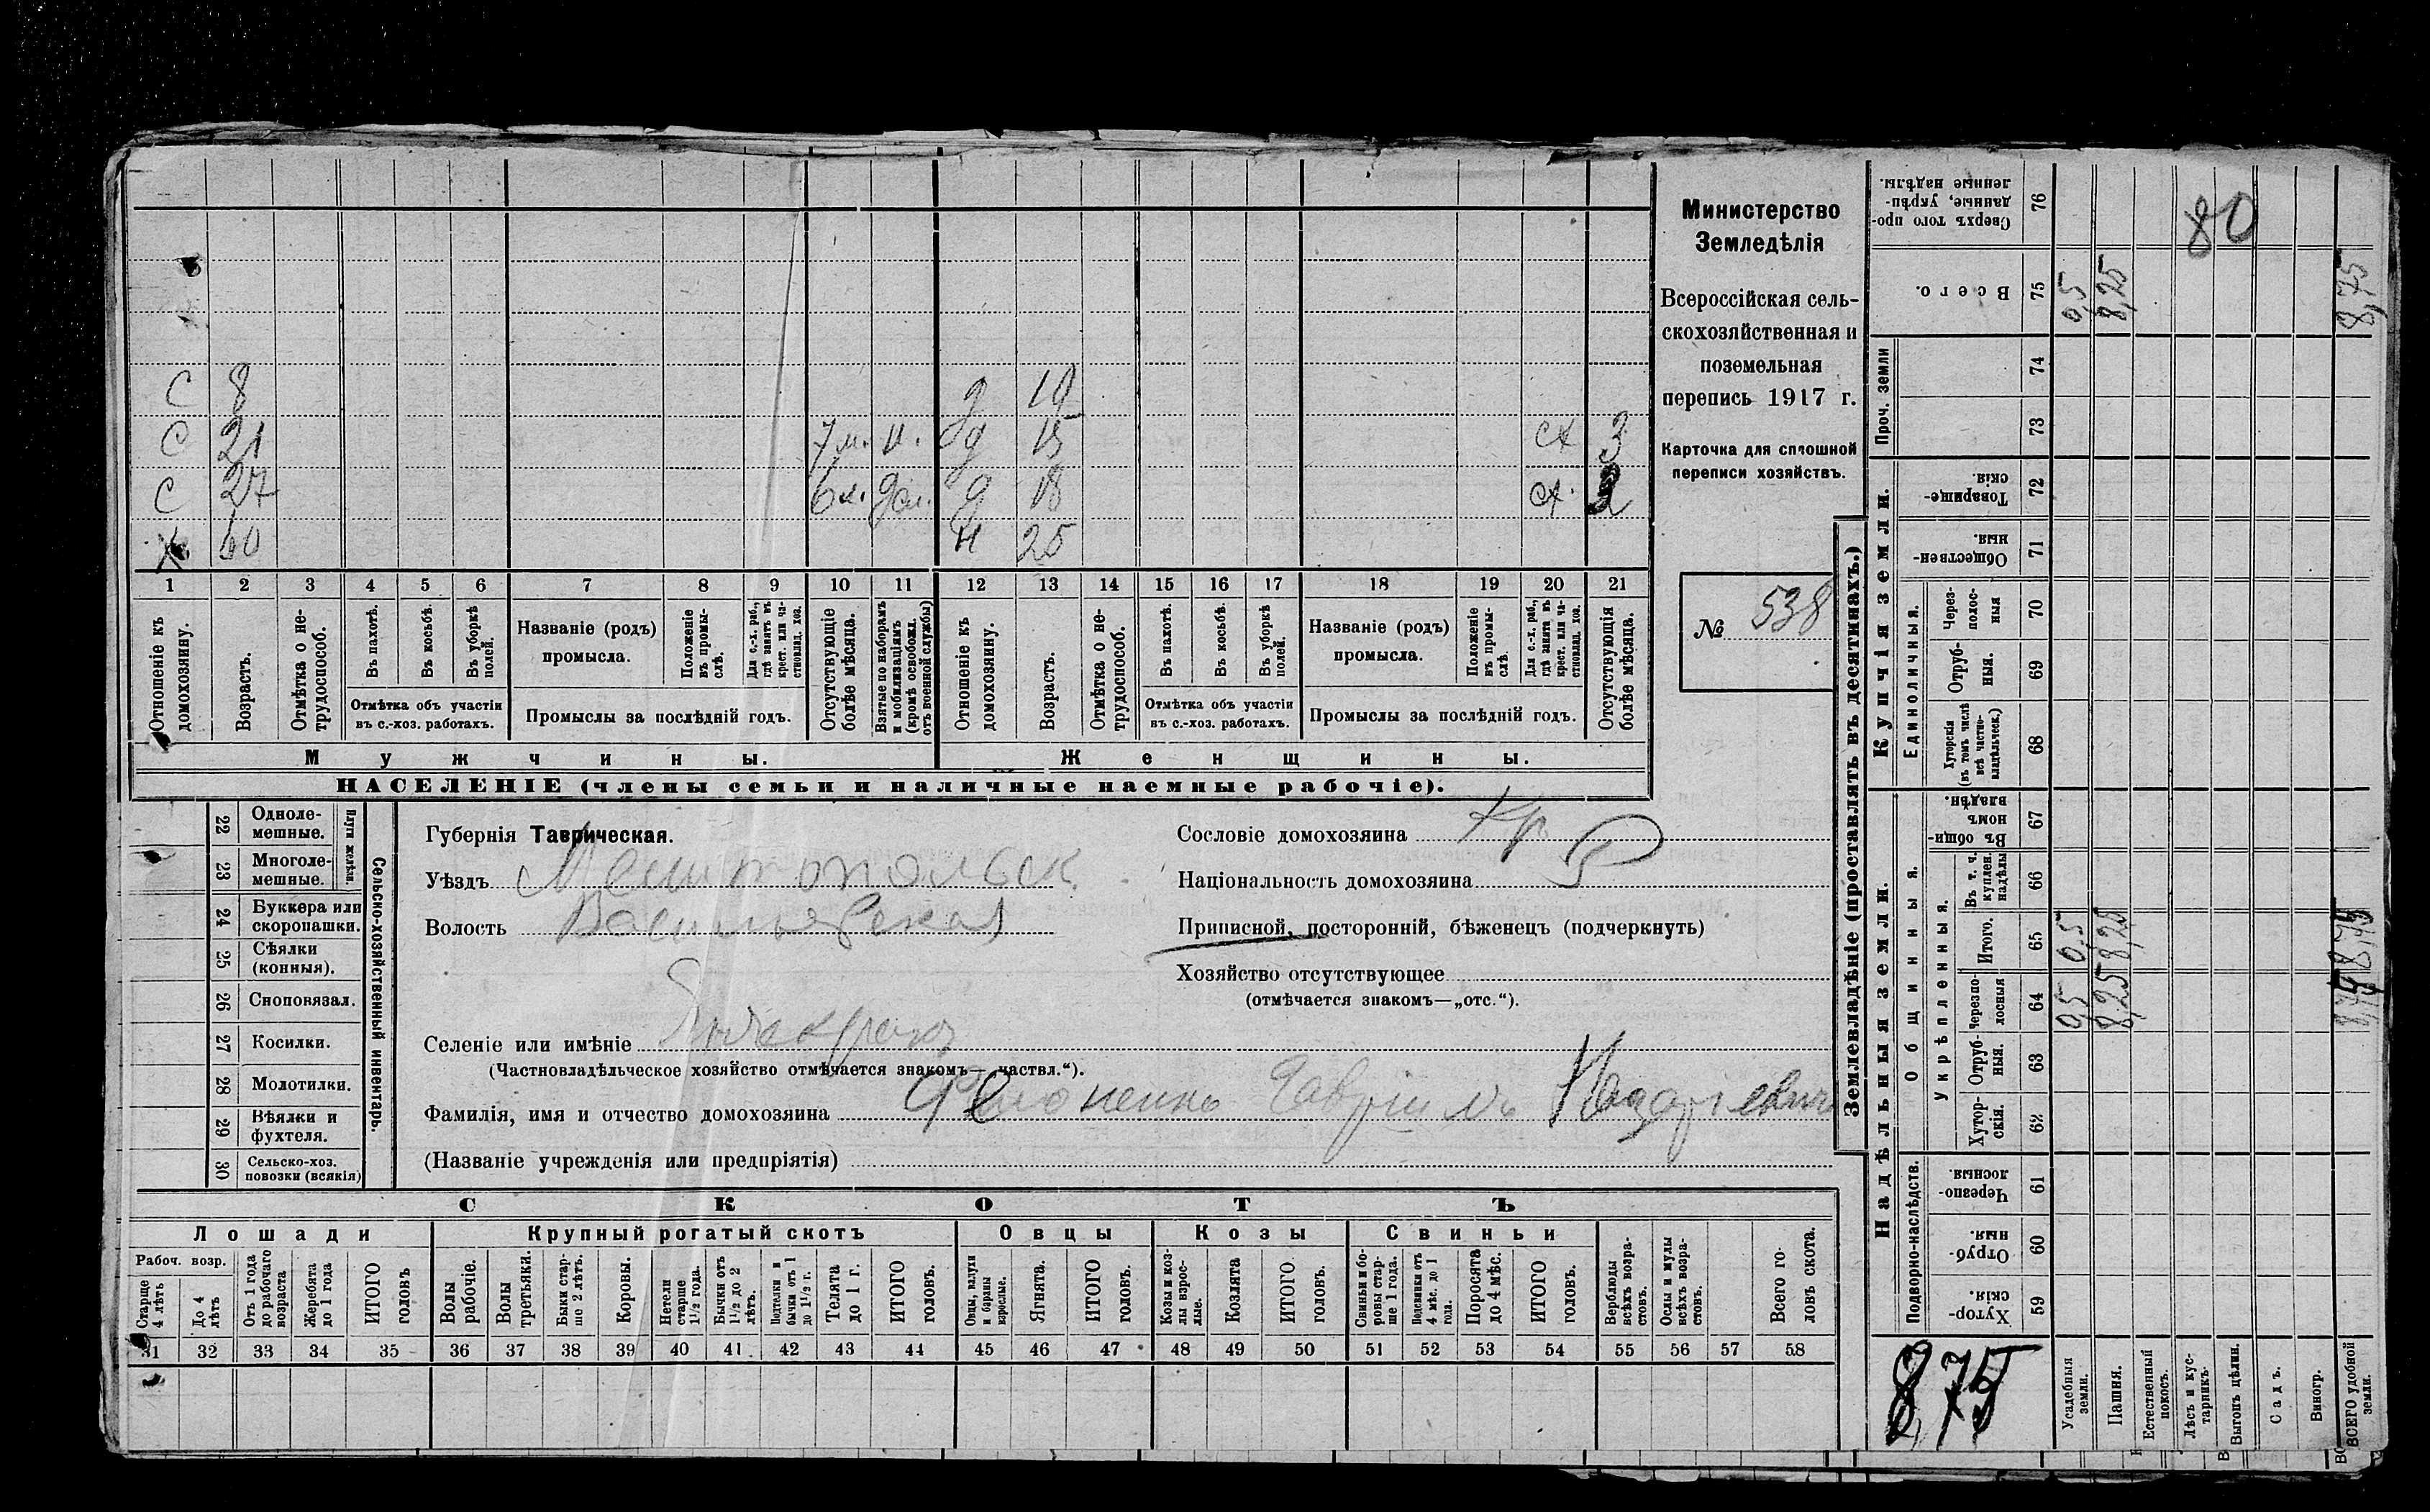 С 8 д 10
С 21 7 м. д 15 ст 3
С 27 6 м. д 18 ст.
60 25
1 2 3 4 5 6 7 8 9 10 11 12 13 14 15 16 17 18 19 20 21
Отношеніе къ домохозяину.
Возрастъ.
Отмѣтка о не-трудоспособ.
Въ пахотѣ.
Въ косьбѣ.
Въ уборкѣ полей.
Отмѣтка объ участіи
въ с.-хоз. работахъ.
Названіе (родъ)
промысла.
Положеніе въ промы-слѣ.
Для с.-х. раб., гдѣ занятъ въ крест. или ча-стновлад. хоз.
Промыслы за послѣдній годъ.
Отсутствующіе болѣе мѣсяца.
Взятые по наборамъ и мобилизаціямъ (кромѣ освобожд. отъ военной службы)
Отношеніе къ домохозяину.
Возрастъ.
Отмѣтка о не-трудоспособ.
Въ пахотѣ.
Въ косьбѣ.
Въ уборкѣ полей.
Отмѣтка объ участіи
въ с.-хоз. работахъ.
Названіе (родъ)
промысла.
Положеніе въ промы-слѣ.
Для с.-х. раб., гдѣ занята въ крест. или ча-стновлад. хоз.
Промыслы за послѣдній годъ.
Отсутствующія болѣе мѣсяца.
Мужчины.
Женщины.
НАСЕЛЕНІЕ (члены семьи и наличные наемные рабочіе).
Министерство
Земледѣлія
Всероссійская сель-
скохозяйственная и
поземельная
перепись 1917 г.
Карточка для сплошной
переписи хозяйствъ.
№ 538
Сельско-хозяйственный инвентарь.
Плуги желѣзн.
22 Одноле-мешные.
23 Многоле-мешные.
24 Буккера или скоропашки.
25 Сѣялки (конныя).
26 Сноповязал.
27 Косилки.
28 Молотилки.
29 Вѣялки и фухтеля.
30 Сельско-хоз. повозки (всякія)
Губернія Таврическая.
Уѣздъ Мелитопольск.
Волость Васильевская
Селеніе или имѣніе
(Частновладѣльческое хозяйство отмѣчается знакомъ—„частвл.“).
Фамилія, имя и отчество домохозяина Гавріилъ Назаріевичъ
(Названіе учрежденія или предпріятія)
Сословіе домохозяина Кр
Національность домохозяина Р
Приписной, посторонній, бѣженецъ (подчеркнуть)
Хозяйство отсутствующее
(отмѣчается знакомъ—„отс.“).
СКОТЪ
Лошади
Крупный рогатый скотъ
Овцы
Козы
Свиньи
Рабоч. возр.
Старше 4 лѣтъ
До 4 лѣтъ
Отъ 1 года до рабочаго возраста
Жеребята до 1 года
ИТОГО головъ
Волы рабочіе.
Волы третьяки.
Быки стар-ше 2 лѣтъ.
Коровы.
Нетели старше 1½ года.
Бычки отъ 1½ до 2 лѣтъ.
Подтелки и бычки отъ 1 до 1½ г.
Телята до 1 г.
ИТОГО головъ.
Овцы, валухи и бараны взрослые.
Ягнята.
ИТОГО головъ.
Козы и коз-лы взрос-лые.
Козлята
ИТОГО головъ.
Свиньи и бо-ровы стар-ше 1 года.
Подсвинки отъ 4 мѣс. до 1 года.
Поросята до 4 мѣс.
ИТОГО головъ.
Верблюды всѣхъ возра-стовъ.
Ослы и мулы всѣхъ возра-стовъ.
Всего го-ловъ скота.
31 32 33 34 35 36 37 38 39 40 41 42 43 44 45 46 47 48 49 50 51 52 53 54 55 56 57 58
Землевладѣніе (проставлять въ десятинахъ.)
Сверхъ того про-данные, укрѣп-ленные надѣлы. 76
80
Всего. 75 0,5 8,25 8,75
Проч. земли
74
73
Купчія земли.
Товарище-скія 72
Обществен-ныя. 71
Единоличныя.
Через-полос-ныя 70
Отруб-ныя. 69
Хуторскія (въ томъ числѣ всѣ частно-владѣльческ.) 68
Надѣльныя земли.
Общинныя.
Въ общи-номъ владѣн. 67
Укрѣпленныя.
Въ т. ч. куплен. надѣлы 66
Итого. 65 0,5 8,25 8,75
Черезпо-лосныя 64 0,5 8,25 8,75
Отруб-ныя. 63
Хутор-скія. 62
Подворно-наслѣдств.
Черезпо-лосныя 61
Отруб-ныя 60
Хутор-скія. 59
8,75
Усадебныя земли.
Пашня.
Естественный покосъ.
Лѣсъ и кус-тарникъ.
Выгонъ цѣлин.
Садъ.
Виногр.
ВСЕГО удобной земли.